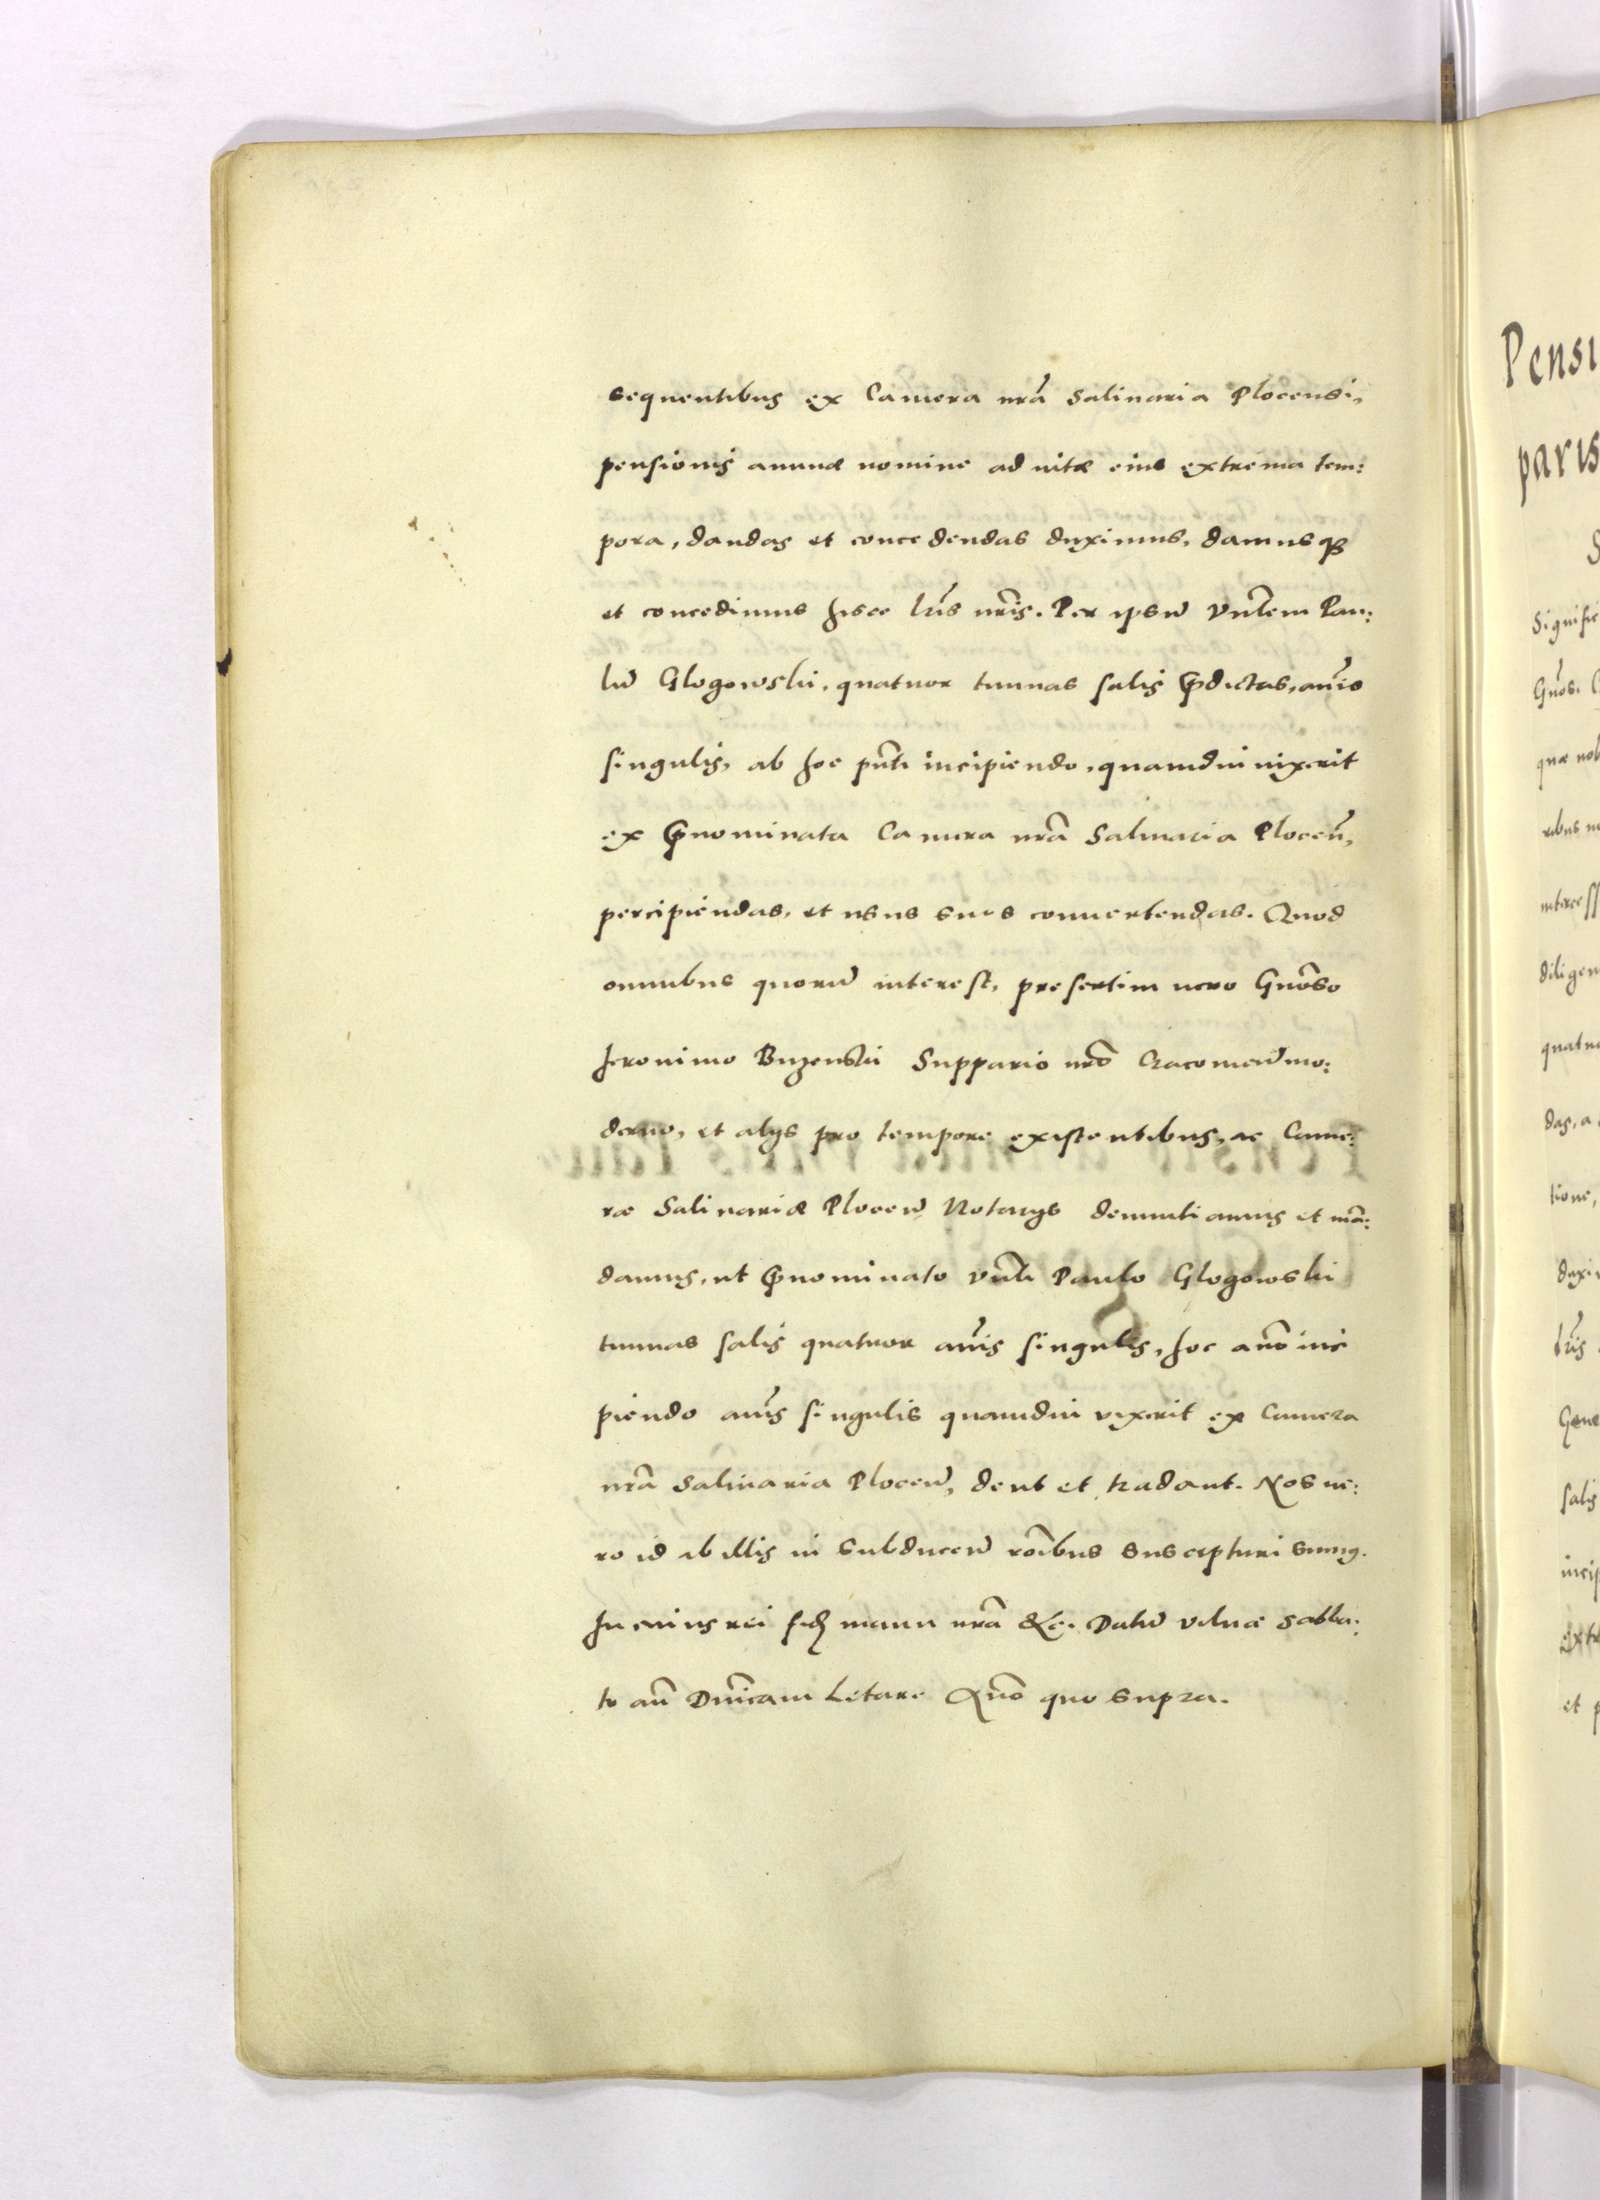 sequentibus ex Camera nrã Salinaria Plocensi,
pensionis annuæ nomine ad uitæ eius extrema tem:
pora, dandas et concedendas duximus, damusqȝ
et concedimus hisce lrĩs nrĩs. Per ipsũ Vnĩtem Pau:
lũ Glogowski, quatuor tunnas salis p̃dictas, annĩs
singulis, ab hoc pñti incipiendo, quamdiu uixerit
ex p̃nominata Camera nrã Salinaria Plocen̄,
percipiendas, et usus suos conuertendas. Quod
omnibus quorũ interest, presertim uero Gnõso
Hieronimo Buzenski Suppario nrõ Cracouien̄ mo:
derno, et alijs pro tempore existentibus, ac Came:
ræ Salinariæ Plocen̄ Notarijs denuntiamus et mã:
damus, ut p̃nominato Vnĩti Paulo Glogowski
tunnas salis quatuor annĩs singulis, hoc annõ inci
piendo annĩs singulis quamdiu vixerit ex Camera
nrã Salinaria Plocen̄, dent et tradant. Nos ue:
ro id ab illis in subducen̄ rõibus suscepturi sumus.
In cuius rei fidẽ manu nrã &c. Datũ Vilnæ Sabba:
to an̄ Dnĩcam Letare Annõ quo supra.
Pensi
paris
S
Signific
Gnõs.
quæ nob
intercess
diligen
quatu
das, a
tione,
duxi
lrĩs
Gene
salis
incip
extr
et p